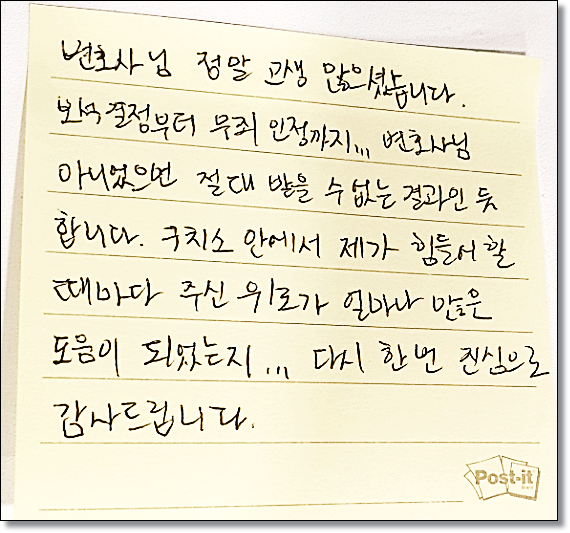 변호사님 정말 고생 많으셨습니다.
보석결정부터 무죄 인정까지... 변호사님
아니었으면 절대 받을 수 없는 결과인 듯
합니다. 구치소 안에서 제가 힘들어 할
때마다 주신 위로가 얼마나 많은
도움이 되었는지... 다시 한 번 진심으로
감사드립니다.
Post-it